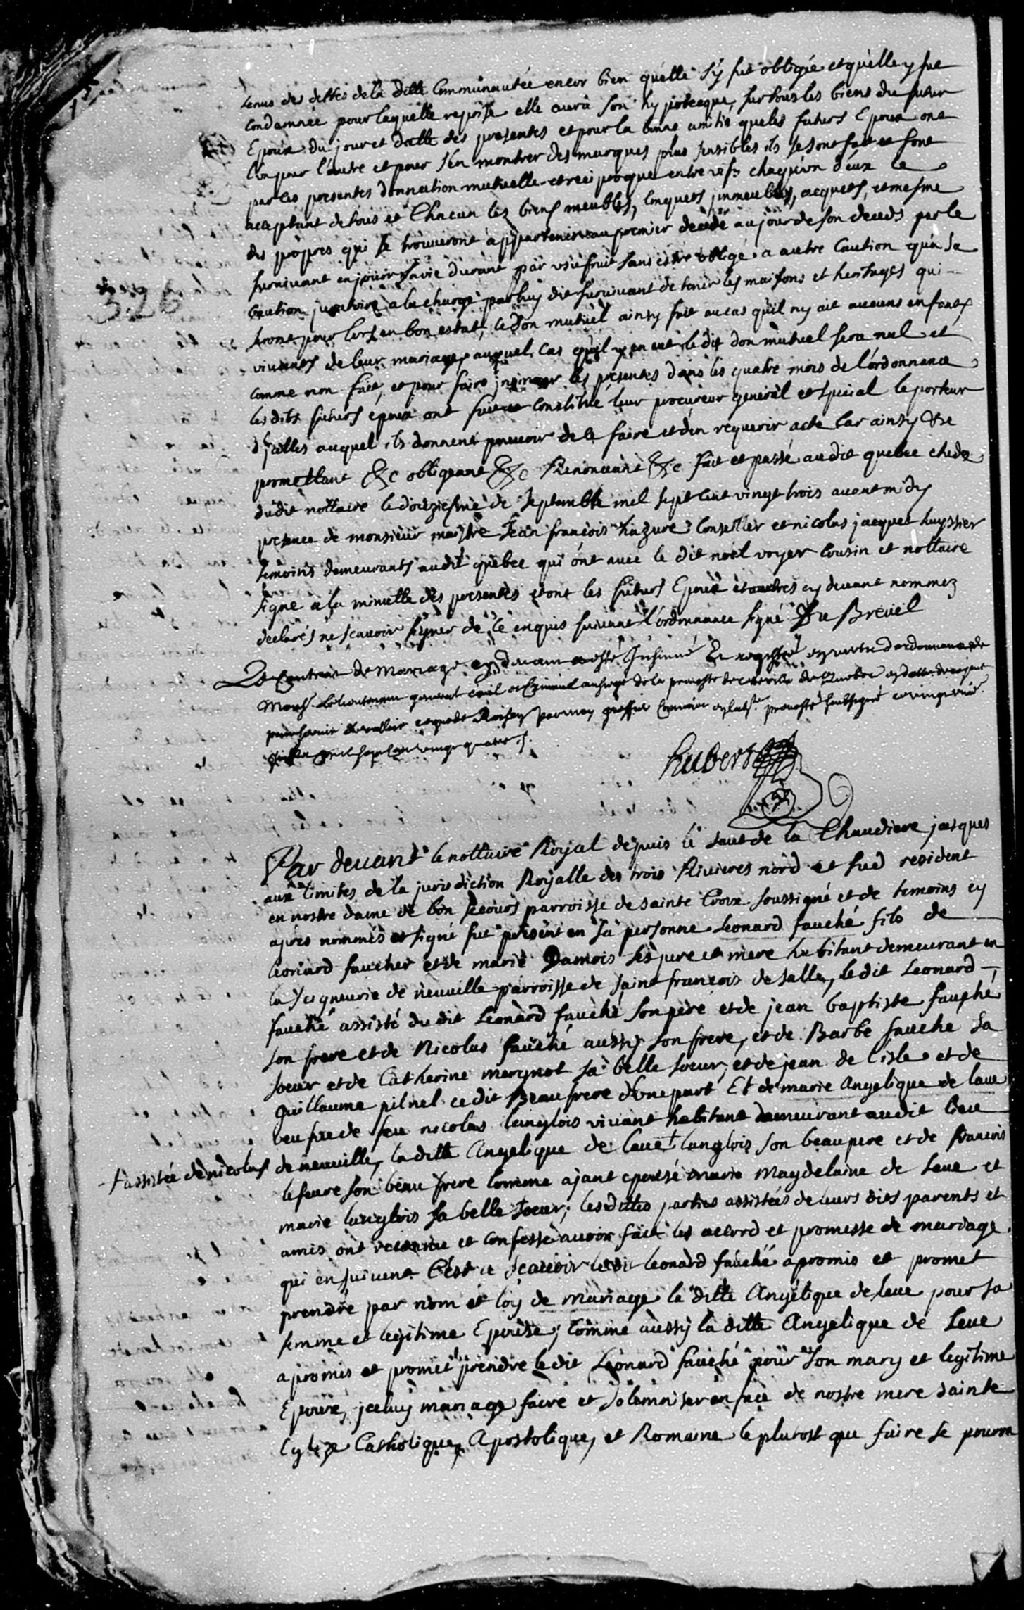 tenus des dettes de la ditte Communautée encor bien quelle s'y fut obligée et qu'elle y fut
condamnée pour laquelle reprise elle aura son hypotecque, sur tous les biens du futur
Epoux du jour et datte des presentes et pour la bonne amitié que les futurs Epoux ont
l'un pour l'autre et pour s'en montrer des marques plus sensibles ils se sont fait et font
par les presentes donnation mutuelle et reciproque entre vifs chaqu'un d'eux ce
acceptant de tous et Chacun les biens meubles, Conquets jmmeubles, acquets, et mesme
des propres qui se trouveront appartenir au premier decedé au jour de son deceds par le
survivant en jouir sa vie durant par usufruit sans estre obligé a autre Caution qua sa
Caution juratoire a la charge par luy dit survivant de tenir les maisons et heritages qui
seront pour lors en bon estat, ce don mutuel ainsy fait au cas qu'il ny ait aucuns enfants
vivants de leur mariage, auquel Cas qu'il y en eut le dit don mutuel sera nul et
comme non fait, et pour faire jnsinuer les presentes dans les quatre mois de l'ordonnance
les dits futurs epoux ont fait et Constitué leur procureur general et special le porteur
d'jcelles auquel ils donnent pouvoir de le faire et d'en requerir acte Car ainsy &c
promettant &c obligeant &c Renonceant &c fait et passé audit quebec etude
dudit nottaire le douziesme de Septembre mil sept cent vingt trois avant midy
presence de monsieur maistre Jean françois hazure Conseiller et nicolas jacques huyssier
temoins demeurants audit quebec qui ont avec le dit noël voyer Cousin et nottaire
signé a la minutte des presentes et ont les futurs Epoux et autres cy devant nommez
declarés ne scavoir signer de ce enquis suivant l'ordonnance signé Du Breuil
Le Contrait de Mariage cy devant a esté Insinué et registré en vertu d'ordonnance de
Mons. Le Lieutenant general civil et Criminel au siege de la prevosté de cette ville de Quebec
pour servir et valloir ce que de Raison par moy greffier prevosté soussigné
mil sept cent vingt quatre
hubert
Par devant le nottaire Royal depuis le saut de la Chaudiere jusques
aux Limites de la jurisdiction Royalle des trois Rivieres nord et sud resident
en nostre dame de bon secours parroisse de sainte Croix soussigné et de temoins cy
apres nommés et signé fut present en sa personne Leonard fauché fils de
leonard faucher et de marie Damois ses pere et mere habitant demeurant en
la seigneurie de neuville parroisse de saint francois de salle, le dit Leonard
fauché assisté du dit Léonard fauché son père et de jean baptiste fauché
son frere et de Nicolas fauché aussy son frere, et de Barbe fauché sa
soeur et de Catherine sa belle soeur, et de jean de Lisle et de
Guillaume ce dit Beau frere d'une part Et de marie Angelique de Laue
veufue de feu nicolas Langlois vivant habitant demeurant audit lieu
⸆ assistée de nicolas
de neuville, la ditte Angelique de Laue ⸆ Langlois son beau pere et de francois
lefeure son beau frere Comme ajant epousé marie Magdelaine de Laue et
marie langlois sa belle soeur; les dittes parties assistées de leurs dits parents et
amis ont reconnu et confessé avoir fait les accord et promesse de mariage
qui en suivent. C'est a scavoir ledit Leonard fauché a promis et promet
prendre par nom et loy de mariage la ditte Angelique de Laue pour sa
femme et legitime Epouse, Comme aussy la ditte Angelique de Leue
a promis et promet prendre le dit Léonard fauché pour son mary et legitime
Epoux, jceluy mariage faire et solemniser en face de nostre mere sainte
Eglise Catholique, Apostolique, et Romaine le plutost que faire se pourra
326